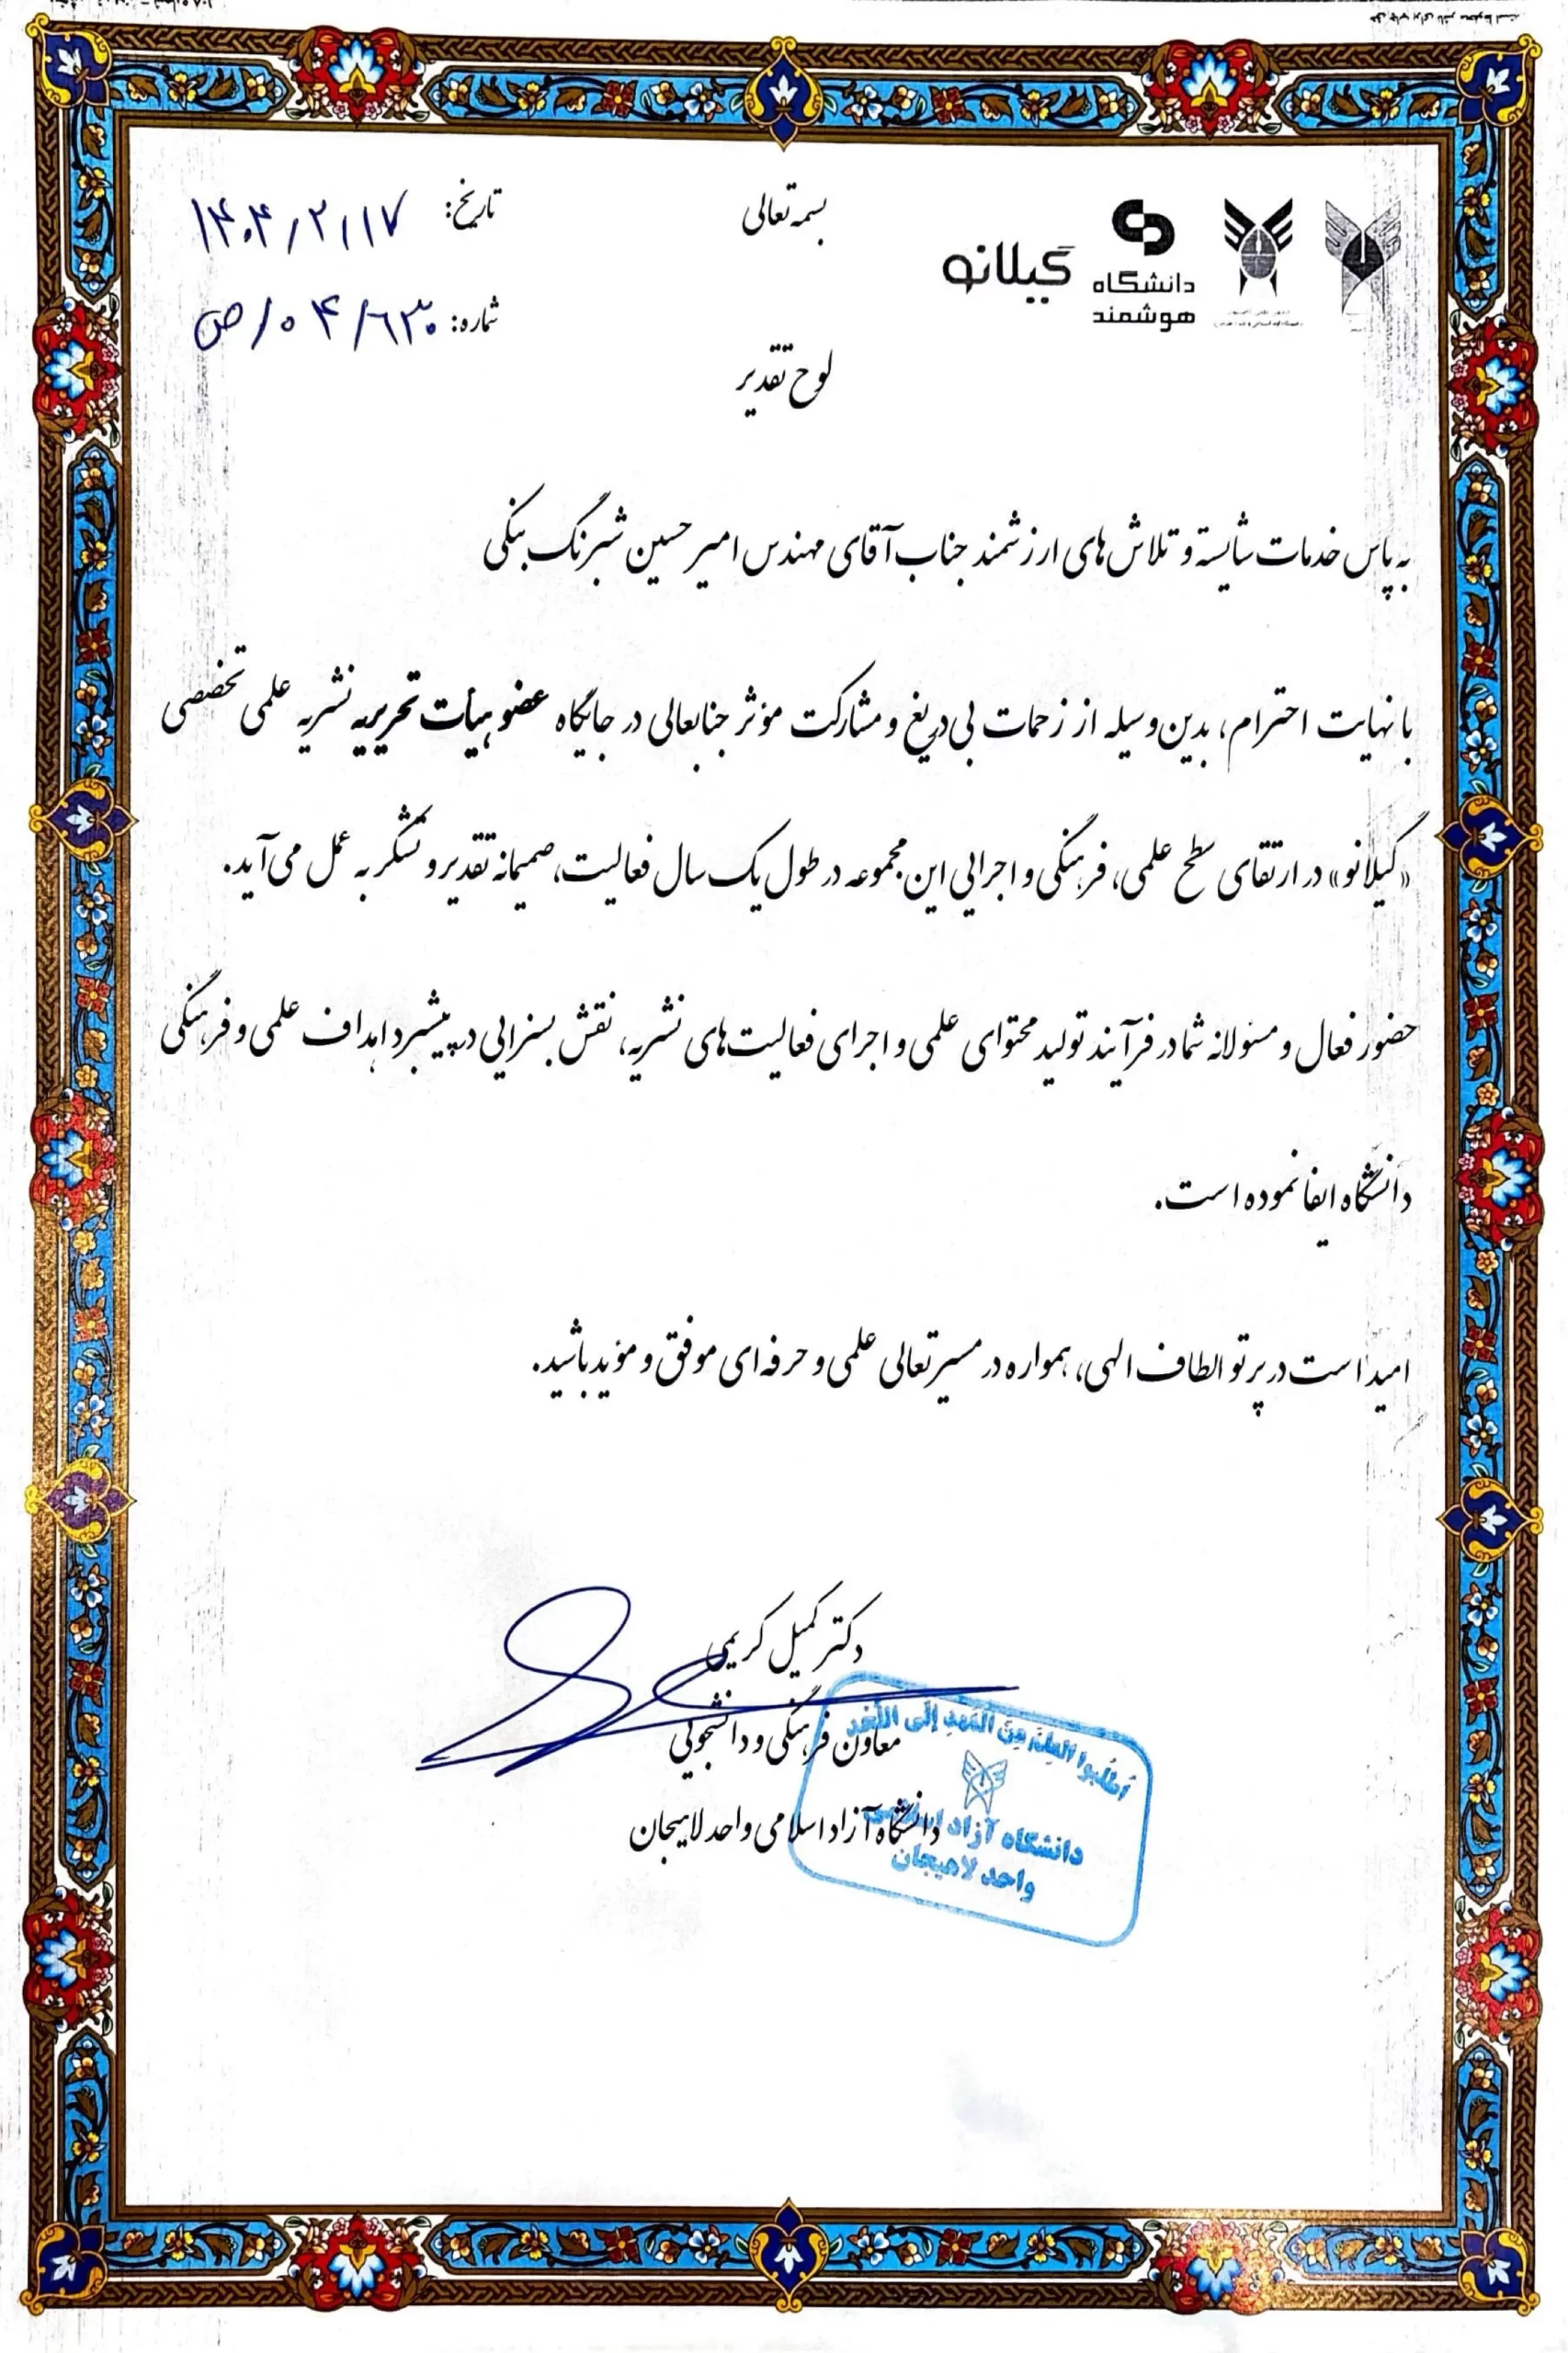 بسمه تعالی
تاریخ: ۱۴۰۴/۲/۱۷
شماره: ۰۴/۶۳۰/ص
گیلانو
دانشگاه
هوشمند
لوح تقدیر
به پاس خدمات شایسته و تلاش های ارزشمند جناب آقای مهندس امیر حسین شبرنگ بنگی
با نهایت احترام، بدین وسیله از زحمات بی دریغ و مشارکت مؤثر جنابعالی در جایگاه عضو هیأت تحریریه نشریه علمی تخصصی
«گیلانو» در ارتقای سطح علمی، فرهنگی و اجرایی این مجموعه در طول یک سال فعالیت، صمیمانه تقدیر و تشکر به عمل می آید.
حضور فعال و مسئولانه شما در فرآیند تولید محتوای علمی و اجرای فعالیت های نشریه، نقش بسزایی در پیشبرد اهداف علمی و فرهنگی
دانشگاه ایفا نموده است.
امید است در پرتو الطاف الهی، همواره در مسیر تعالی علمی و حرفه ای موفق و مؤید باشید.
دکتر کمیل کریمی
معاون فرهنگی و دانشجویی
دانشگاه آزاد اسلامی واحد لاهیجان
اُطلُبوا العِلمَ مِنَ المَهدِ إِلَی اللَّحَدِ
دانشگاه آزاد اسلامی
واحد لاهیجان